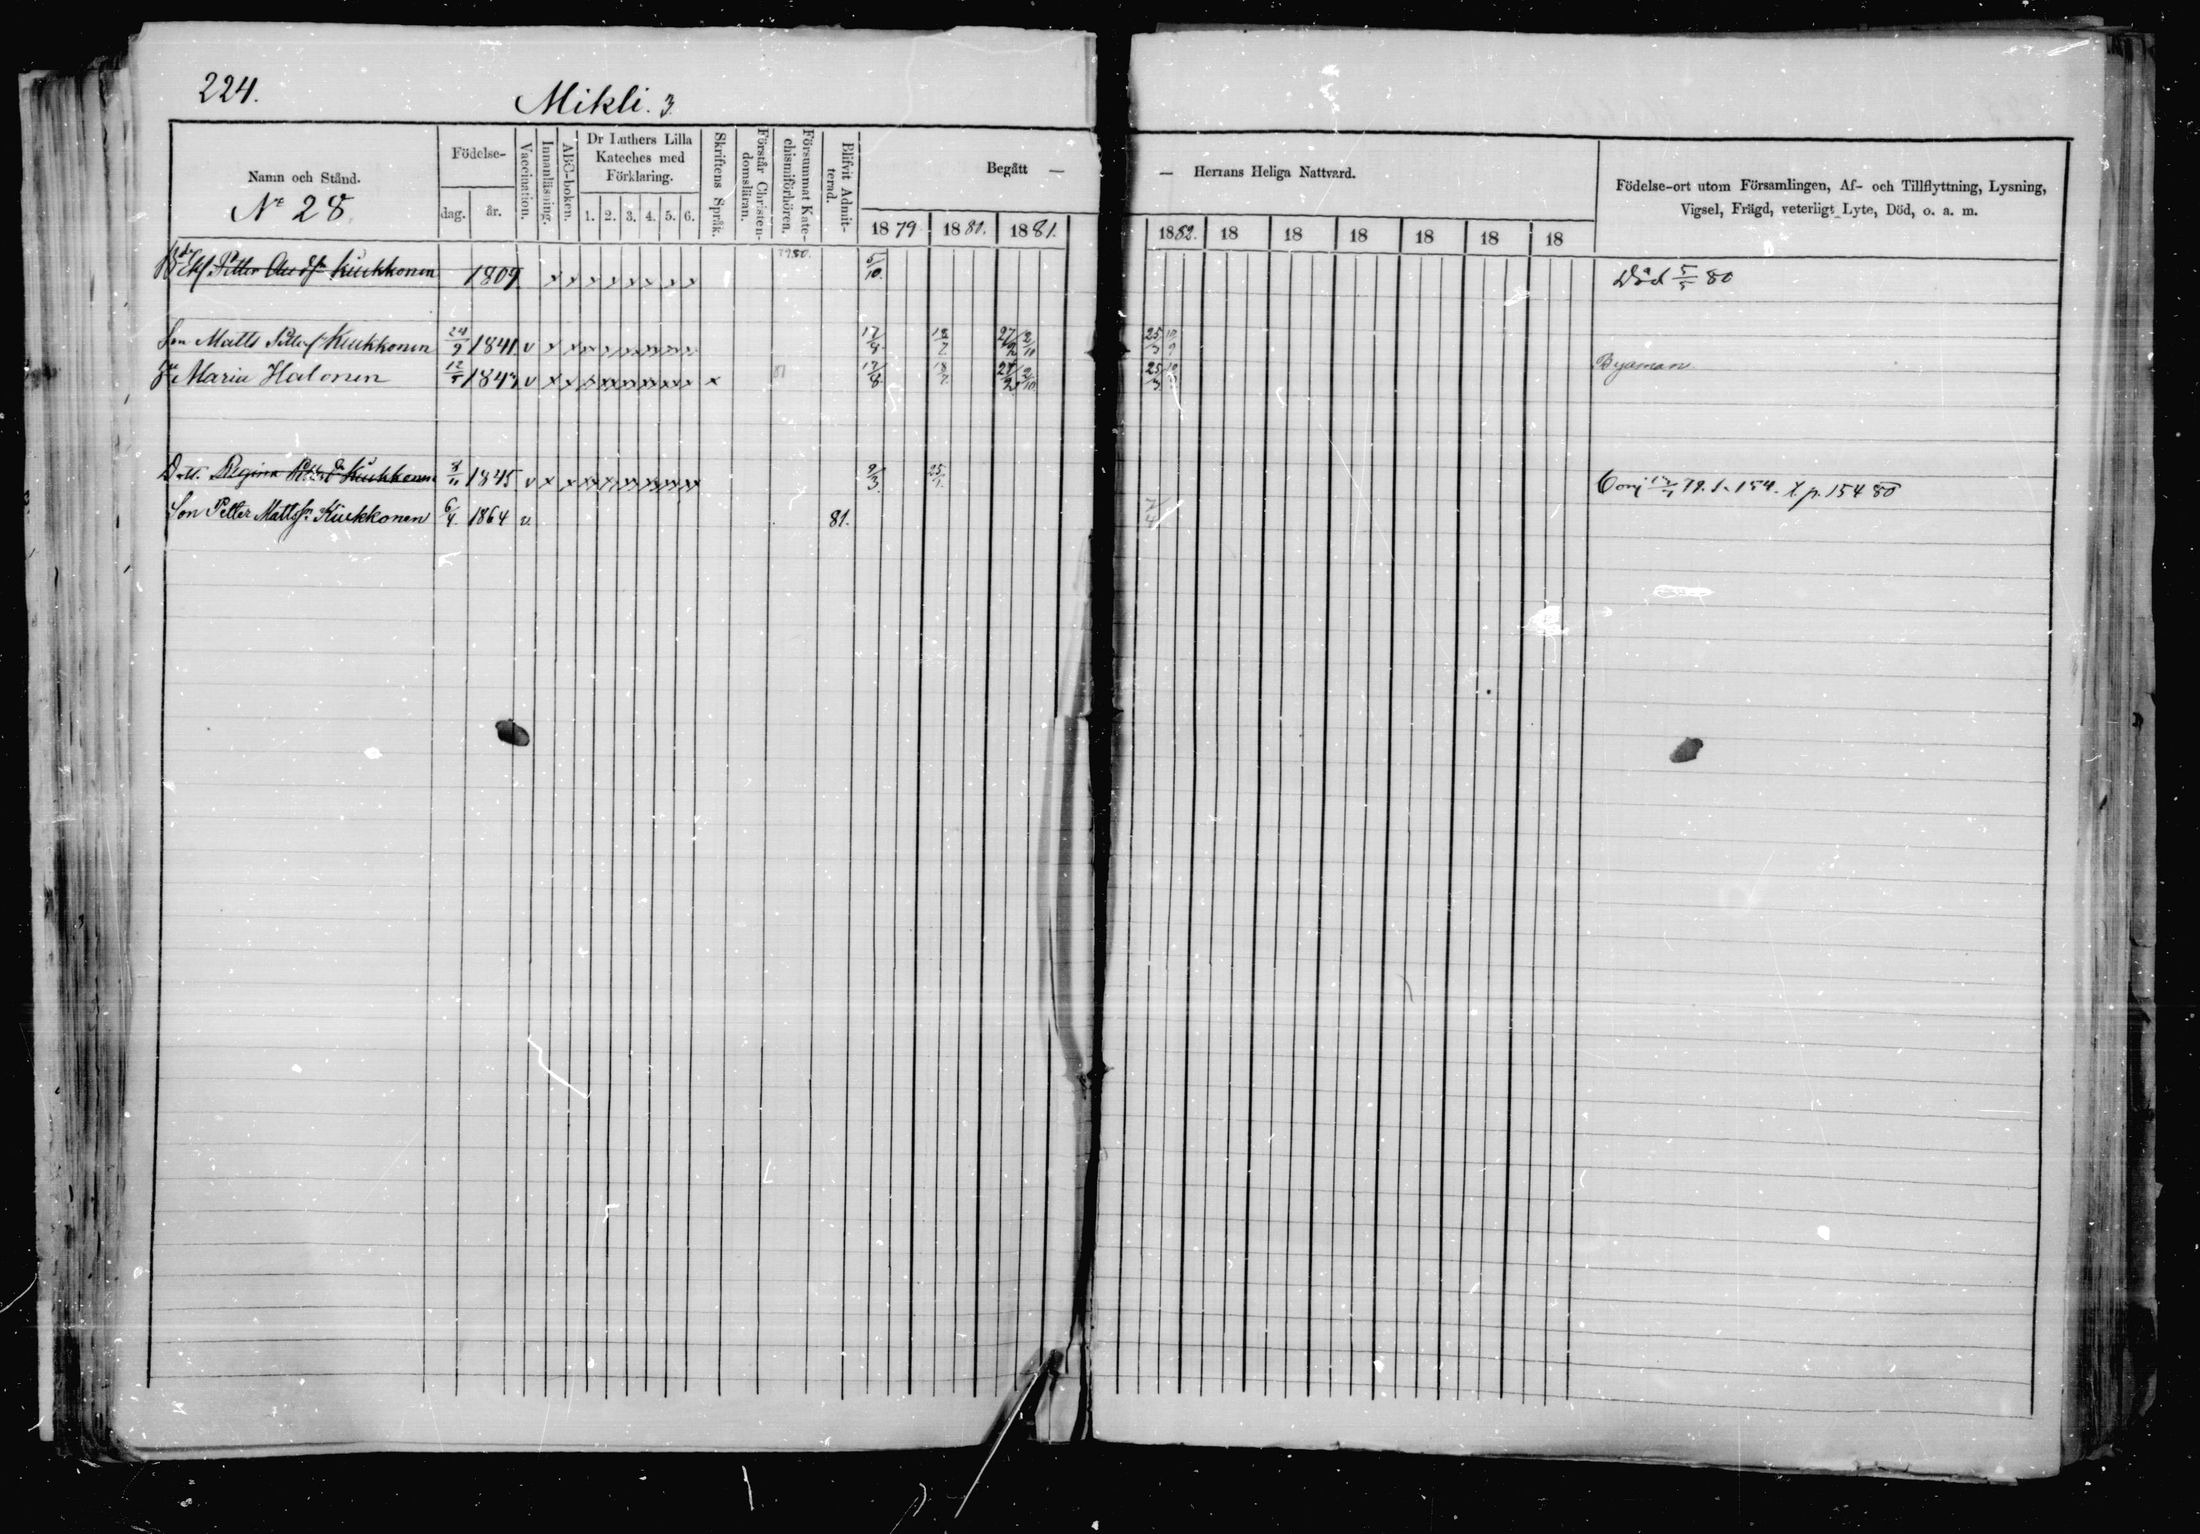 224.
Mikli. 3
Namn och Stånd.
Nr 28.
Födelse-
dag.
år.
Vaccination.
Innanläsning.
ABC-boken.
Dr Luthers Lilla
Kateches med
Förklaring.
1. 2. 3. 4. 5. 6.
Skriftens Språk.
Förstår Christen-
domsläran.
Försummat Kate-
chismiförhören.
Blifvit Admit-
terad.
Begått —
— Herrans Heliga Nattvard.
1879 1880. 1881. 1882. 18 18 18 18 18 18
Födelse-ort utom Församlingen, Af- och Tillflyttning, Lysning,
Vigsel, Frägd, veterligt Lyte, Död, o. a. m.
Petter Kiukkonen 1809 x x x x x x x x 1980. 5/10. Död 5/5 80
Son Matts Kiukkonen 24/9 1841 v x x x x x x x x 17/8 18/7 27/2 2/10 25/3 10/9
Maria Halonen 12/5 1843 v x x x x x x x x x 81 17/8 18/7 27/2 2/10 25/3 10/9 Byaman
Dott. Regina Kiukkonen 8/11 1845 v x x x x x x x x 9/3. 25/1. Conj 79. s. 154. X p. 154 80
Son Petter Mattss. Kiukkonen 6/4. 1864 v. 81.